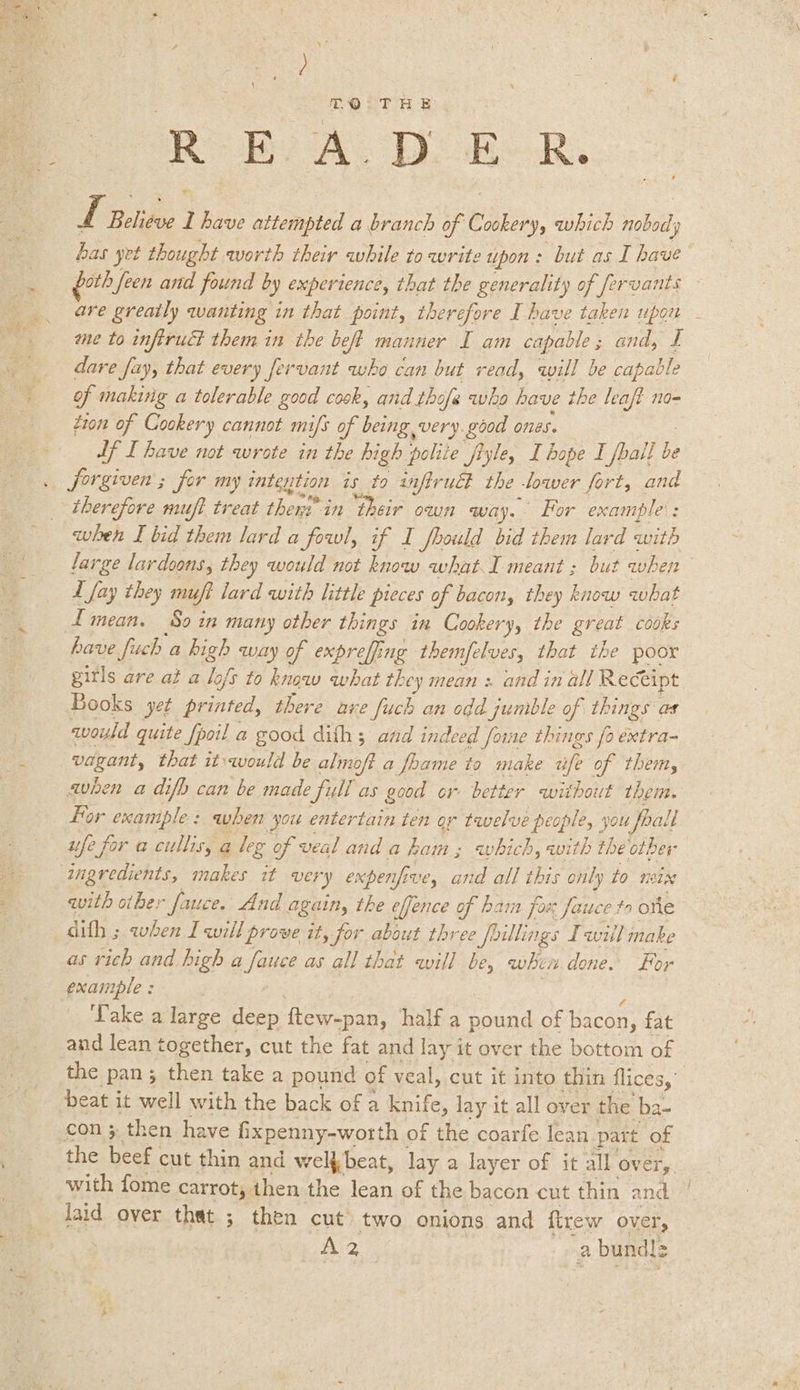 TO THE
READER.
I Believe I have attempted a branch of Cookery, which nobody
has yet thought worth their while to write upon: but as I have
both ſeen and found by experience, that the generality of ſervants
are greatly wanting in that point, therefore I have taken upon
me to inſtruct them in the beſt manner I am capable; and, I
dare ſay, that every ſervant who can but read, will be capable
of making a tolerable good cook, and thoſe who have the leaſt no-
tion of Cookery cannot miſs of being very good ones.
If I have not wrote in the high polite ſtyle, I hope I ſhall be
forgiven; for my intention is to inſtruct the lower ſort, and
therefore muſt treat them in their own way. For example:
when I bid them lard a fowl, if I ſhould bid them lard with
large lardoons, they would not know what I meant; but when
I ſay they muſt lard with little pieces of bacon, they know what
I mean. So in many other things in Cookery, the great cooks
have ſuch a high way of expreſſing themſelves, that the poor
girls are at a loſs to know what they mean: and in all Receipt
Books yet printed, there are ſuch an odd jumble of things as
would quite ſpoil a good diſh; and indeed ſome things ſo extra-
vagant, that it would be almoſt a ſhame to make uſe of them,
when a diſh can be made full as good or better without them.
For example: when you entertain ten or twelve people, you ſhall
uſe for a cullis, a leg of veal and a ham; which, with the other
ingredients, makes it very expenſive, and all this only to mix
with other ſauce. And again, the eſſence of ham for ſauce to one
diſh; when I will prove it, for about three ſhillings I will make
as rich and high a ſauce as all that will be, when done. For
example:
Take a large deep ſtew-pan, half a pound of bacon, fat
and lean together, cut the fat and lay it over the bottom of
the pan; then take a pound of veal, cut it into thin ſlices,
beat it well with the back of a knife, lay it all over the ba-
con; then have ſixpenny-worth of the coarſe lean part of
the beef cut thin and well beat, lay a layer of it all over,
with ſome carrot, then the lean of the bacon cut thin and
laid over that; then cut two onions and ſtrew over,
A 2 a bundle